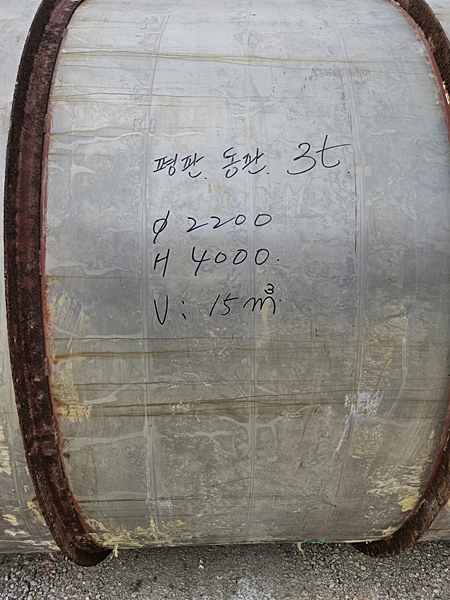 평판. 동판. 3t.
φ 2200
H 4000.
V: 15 m³